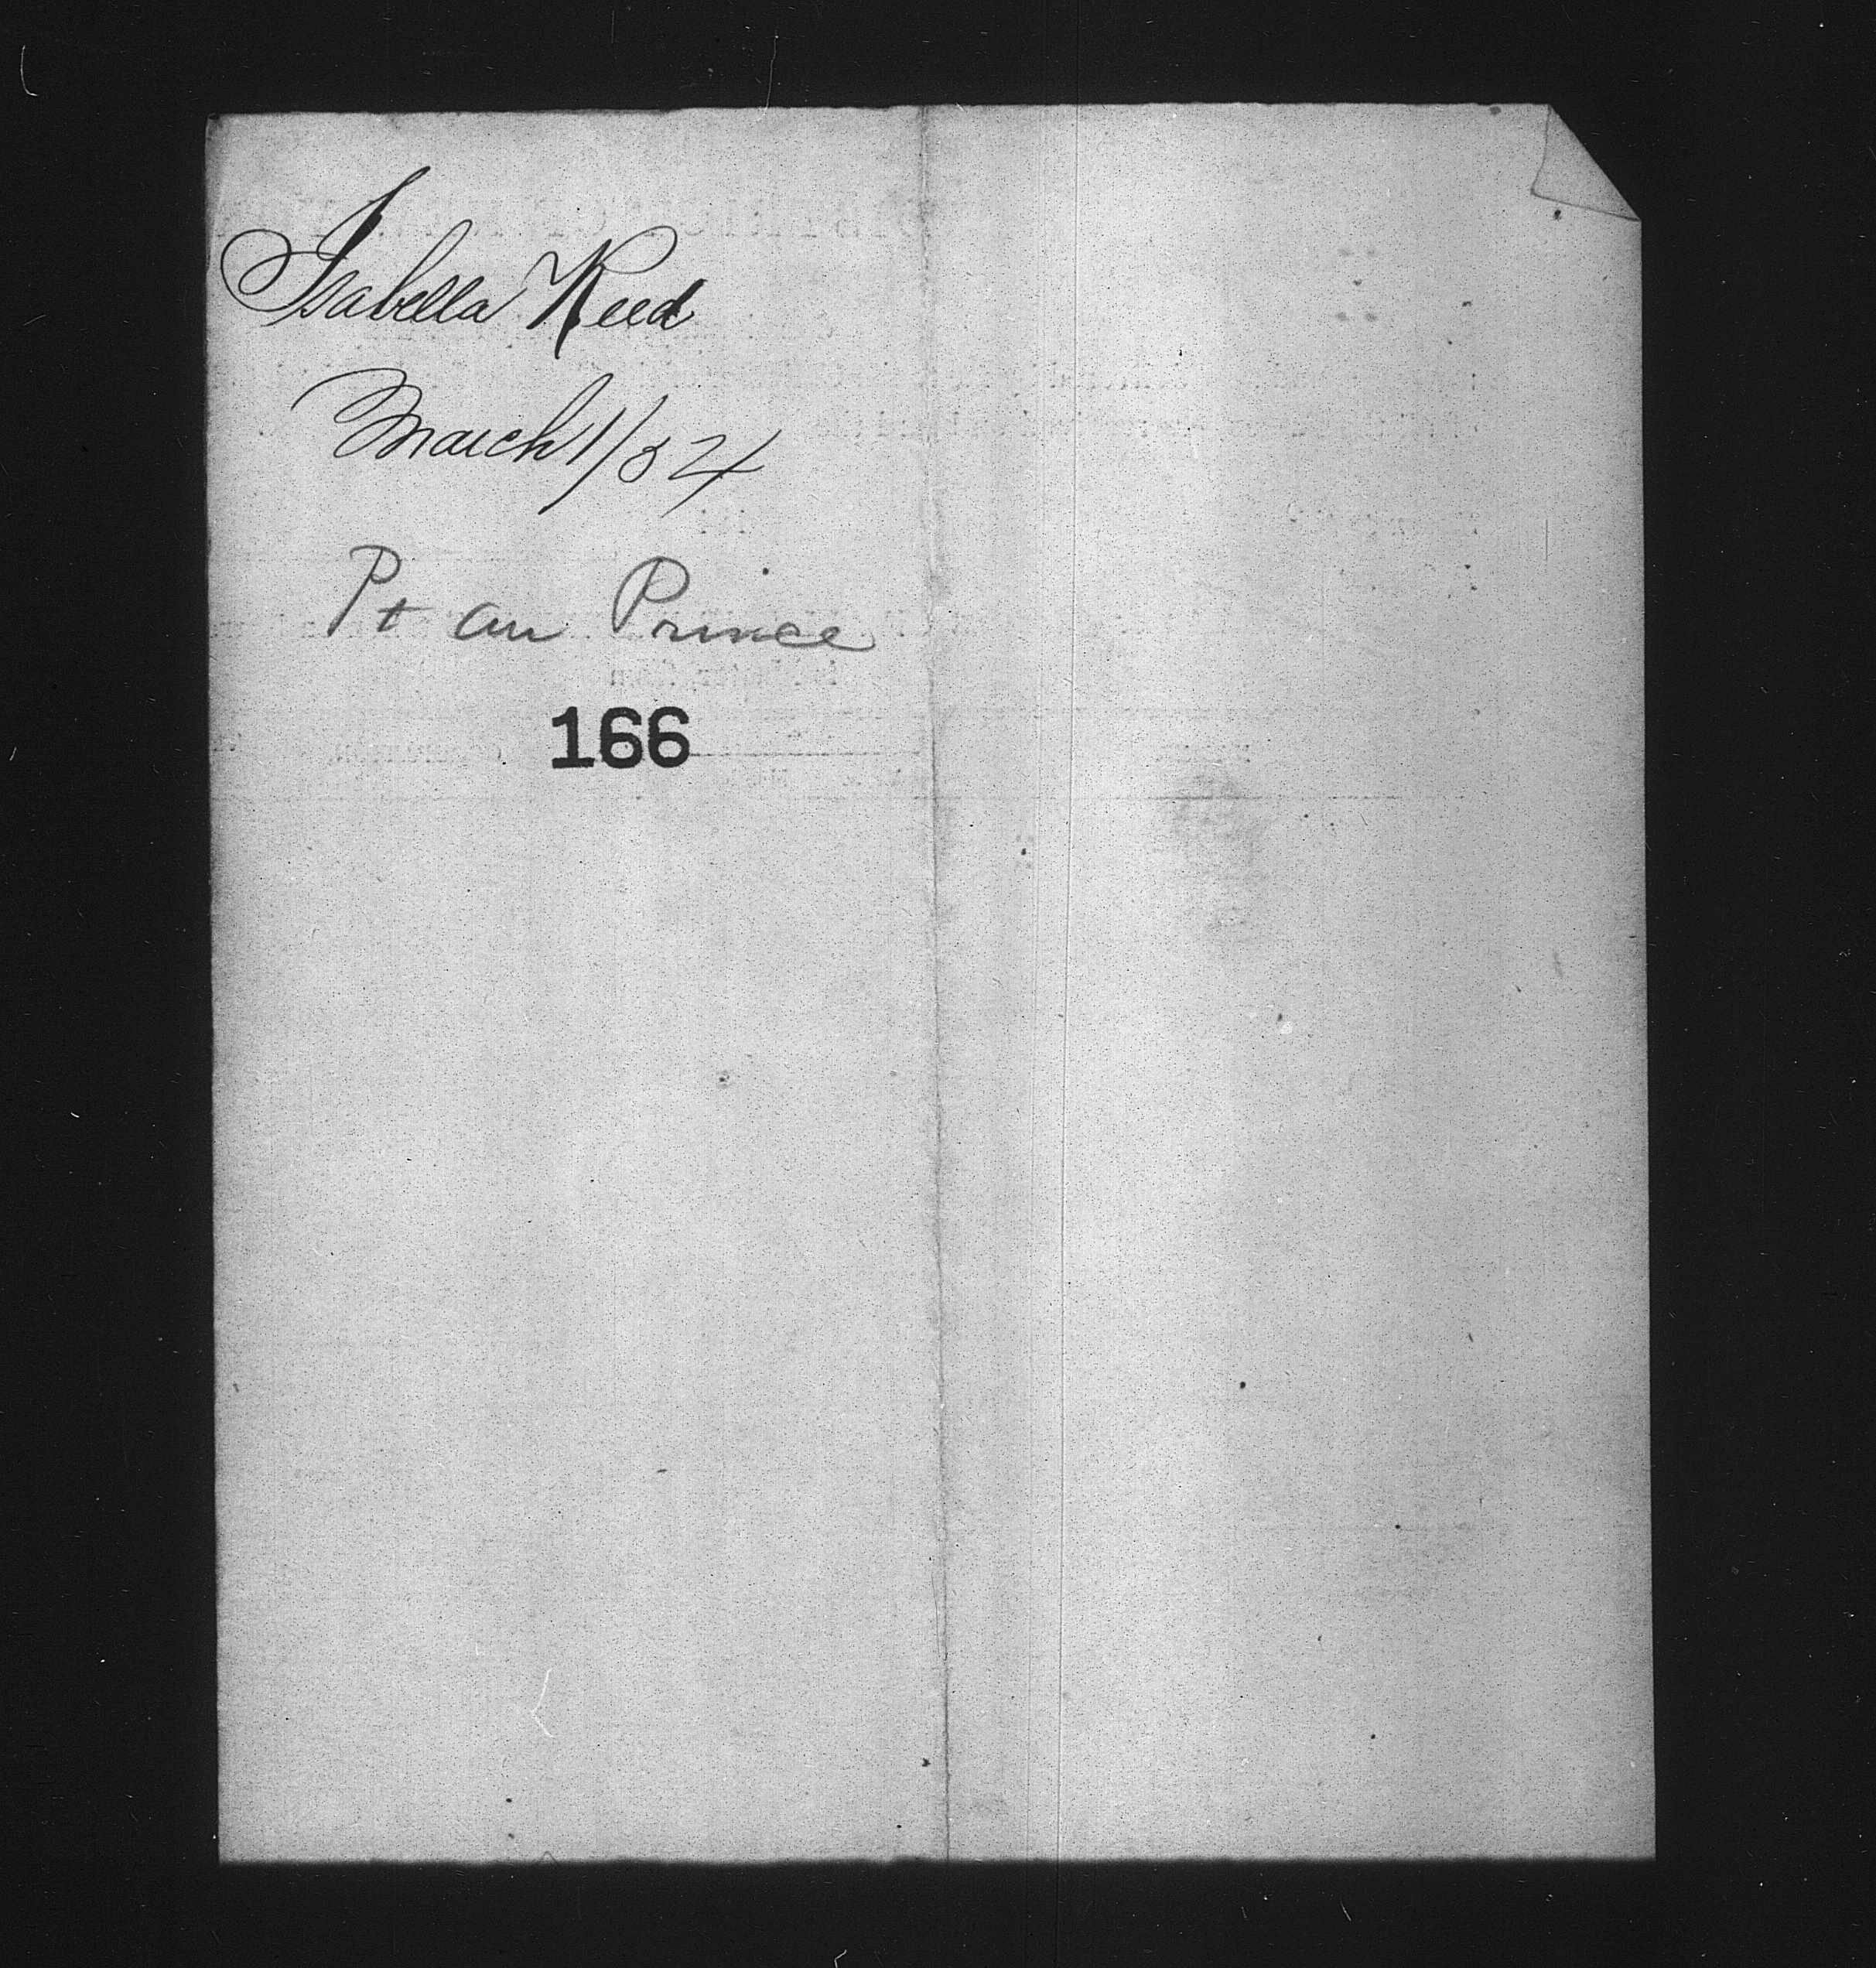 Isabella Reed
March 1/84
Pt au Prince
166